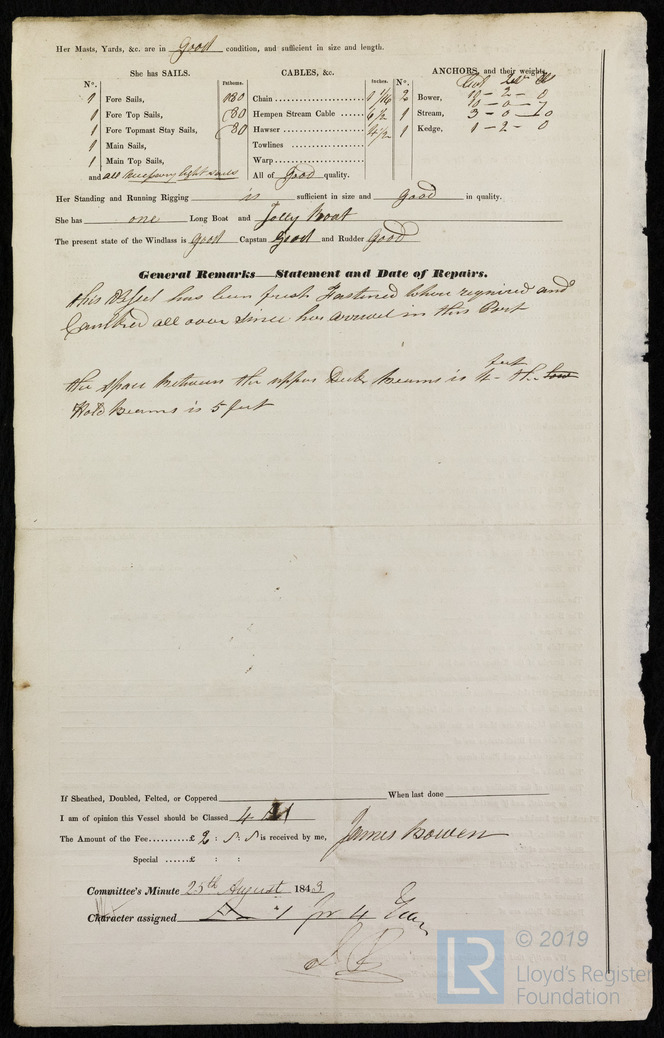 Her Masts, Yards, &c. are in good condition, and sufficient in size and length.
She has SAILS.
CABLES, &c.
ANCHORS, and their weights.
No.
Fathoms.
Inches.
No.
1 Fore Sails,
1 Fore Top Sails,
1 Fore Topmast Stay Sails,
1 Main Sails,
1 Main Top Sails,
and all necessary light sails
Chain 1 1/16
80 Hempen Stream Cable 6 1/2
80 Hawser 4 1/2
Towlines
Warp
All of Good quality.
2 Bower, 10 - 2 - 0
10 - 0 - 7
1 Stream, 3 - 0 - 10
1 Kedge, 1 - 2 - 0
Her Standing and Running Rigging is sufficient in size and good in quality.
She has one Long Boat and Jolly Boat
The present state of the Windlass is good Capstan good and Rudder Good
General Remarks—Statement and Date of Repairs.
this Vessel has been fresh Fastened where required and
Caulked all over since her arrival in this Port
the space between the upper Deck Beams is 4 feet the
Hold Beams is 5 feet
If Sheathed, Doubled, Felted, or Coppered When last done
I am of opinion this Vessel should be Classed 4
The Amount of the Fee £ 2 : : is received by me, James Bowen
Special £ : :
Committee's Minute 25th August 1843
Character assigned 1 for 4
LR
© 2019
Lloyd's Register
Foundation